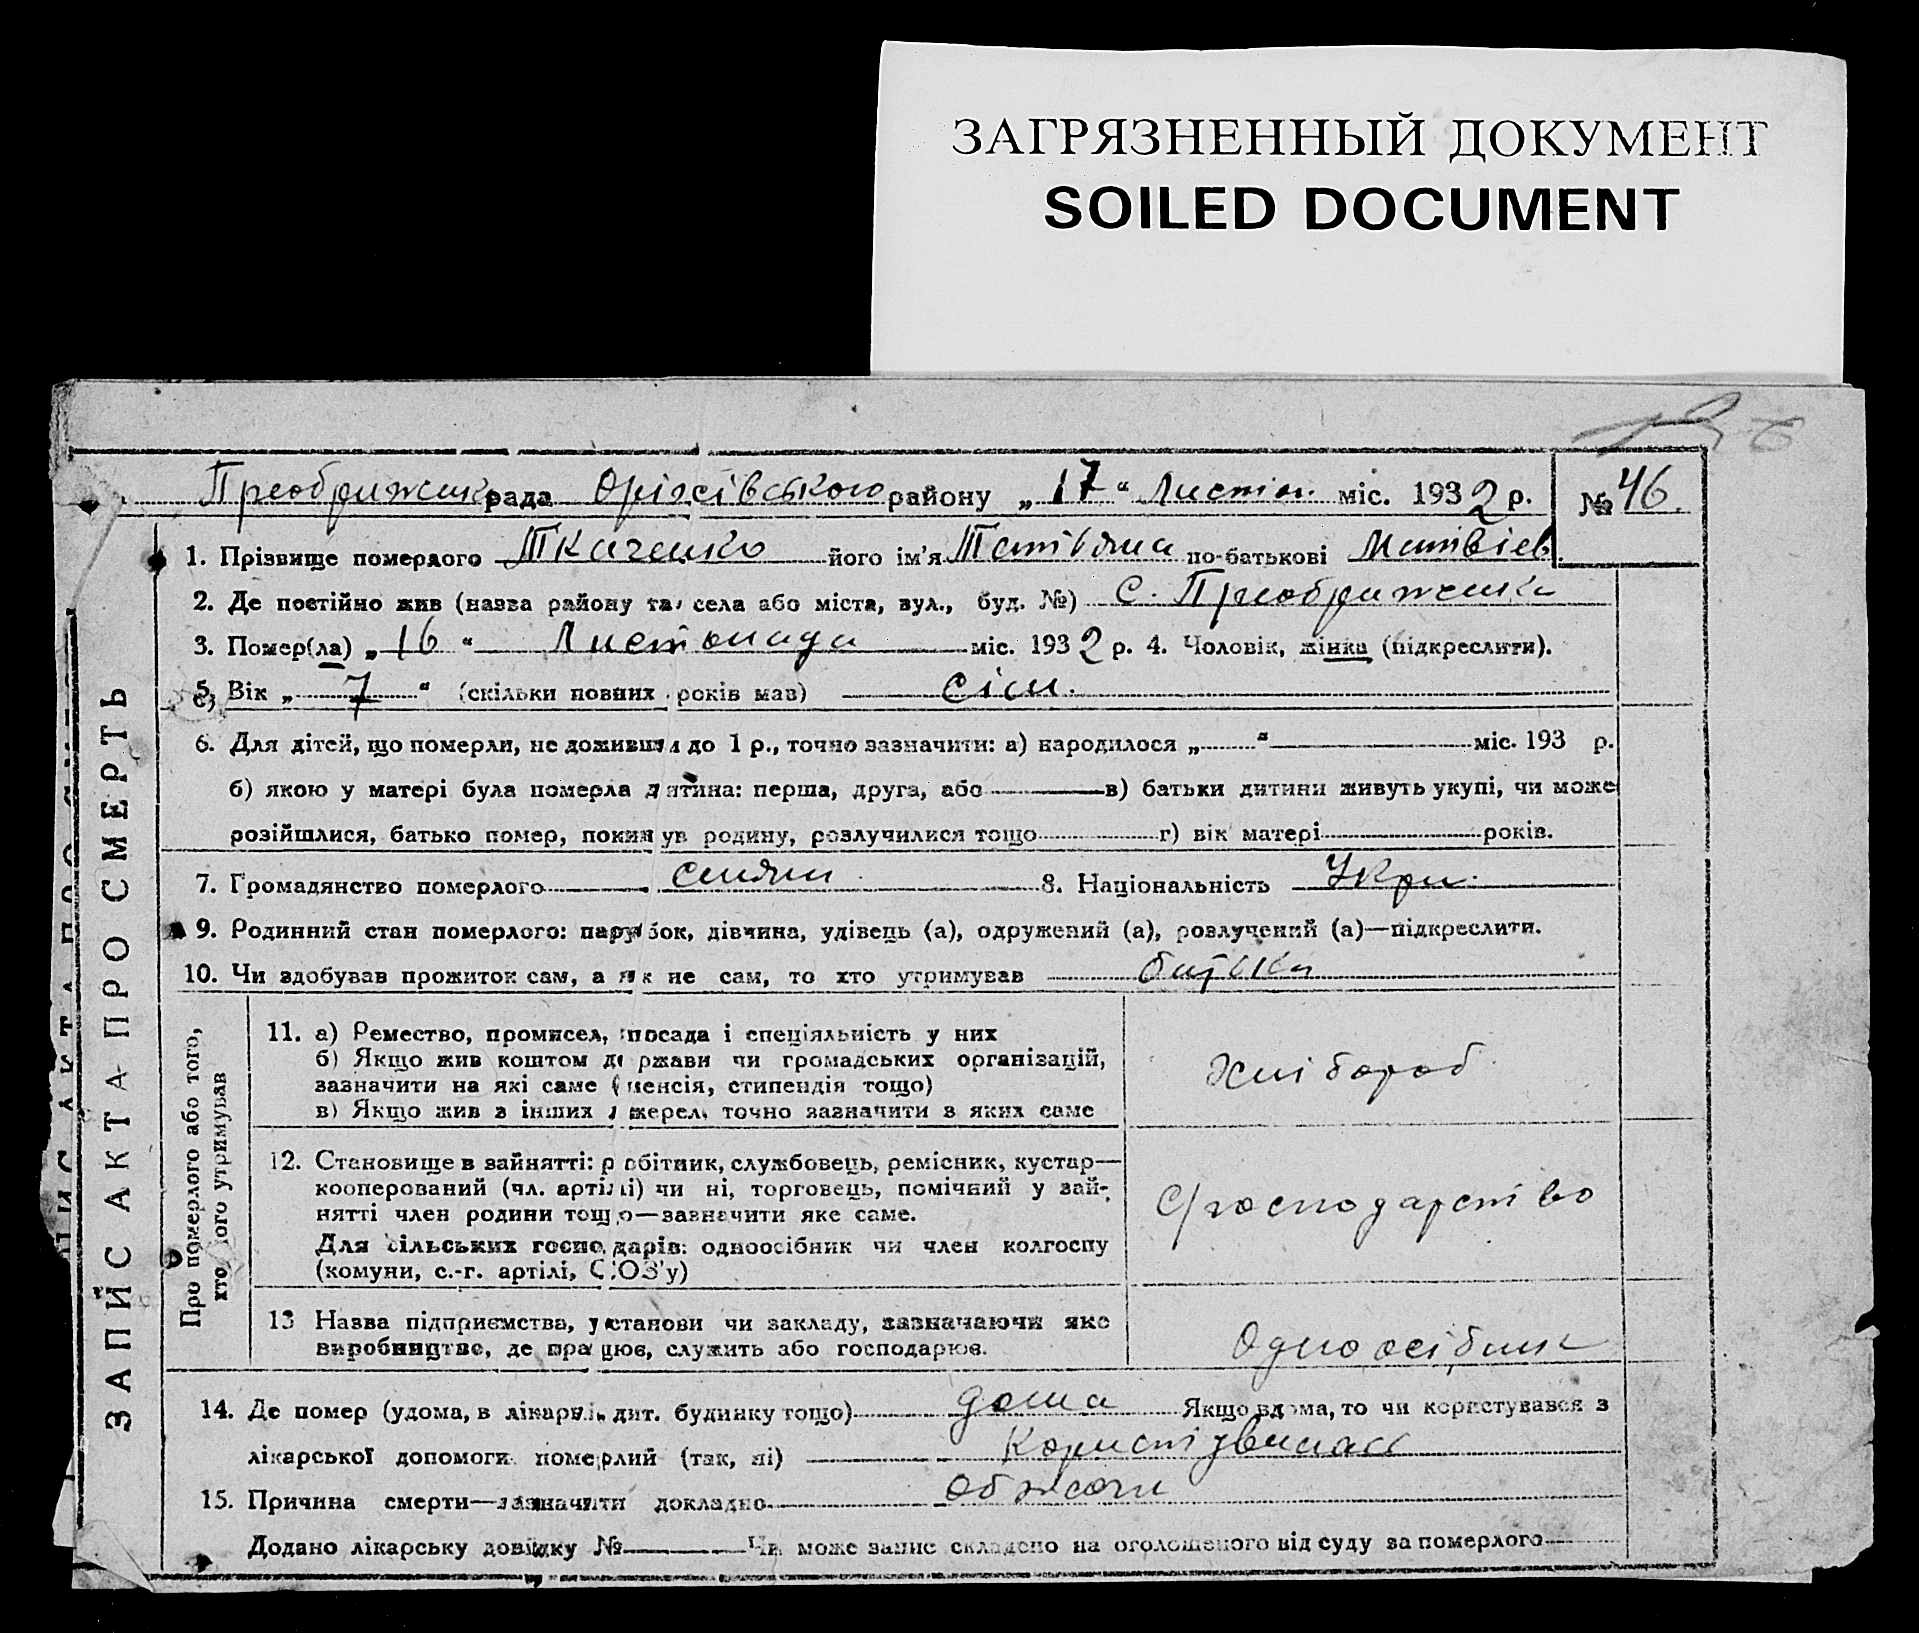 ЗАГРЯЗНЕННЫЙ ДОКУМЕНТ
SOILED DOCUMENT
Преображенська рада Оріхівського району „17“ Листоп. міс. 1932 р. № 46.
1. Прізвище померлого Ткаченко його ім'я Татіяна по-батькові Матвієв.
2. Де постійно жив (назва району та села або міста, вул., буд. №) с. Преображенка
3. Помер(ла) „16“ Листопада міс. 1932 р. 4. Чоловік, жінка (підкреслити).
5. Вік „7“ (скільки повних років мав) сім.
6. Для дітей, що померли, не доживши до 1 р., точно зазначити: а) народилося „ “ міс. 193 р.
б) якою у матері була померла дитина: перша, друга, або в) батьки дитини живуть укупі, чи може
розійшлися, батько помер, покинув родину, розлучилися тощо г) вік матері років.
7. Громадянство померлого 8. Національність Укра.
9. Родинний стан померлого: парубок, дівчина, удівець (а), одружений (а), розлучений (а)—підкреслити.
10. Чи здобував прожиток сам, а як не сам, то хто утримував батьки
ЗАПИС АКТА ПРО СМЕРТЬ
Про померлого або того,
хто його утримував
11. а) Ремество, промисел, посада і спеціяльність у них
б) Якщо жив коштом держави чи громадських організацій,
зазначити на які саме (пенсія, стипендія тощо)
в) Якщо жив з інших джерел, точно зазначити з яких саме
хлібороб
12. Становище в зайнятті: робітник, службовець, ремісник, кустар—
кооперований (чл. артілі) чи ні, торговець, помічний у зай-
нятті член родини тощо—зазначити яке саме.
Для сільських господарів: одноосібник чи член колгоспу
(комуни, с.-г. артілі, СОЗ'у)
с/господарство
13 Назва підприємства, установи чи закладу, зазначаючи яке
виробництво, де працює, служить або господарює.
Одноосібник
14. Де помер (удома, в лікарні, дит. будинку тощо) дома Якщо вдома, то чи користувався з
лікарської допомоги померлий (так, ні)
15. Причина смерти—зазначити докладно
Додано лікарську довідку № Чи може запис складено на оголошеного від суду за померлого